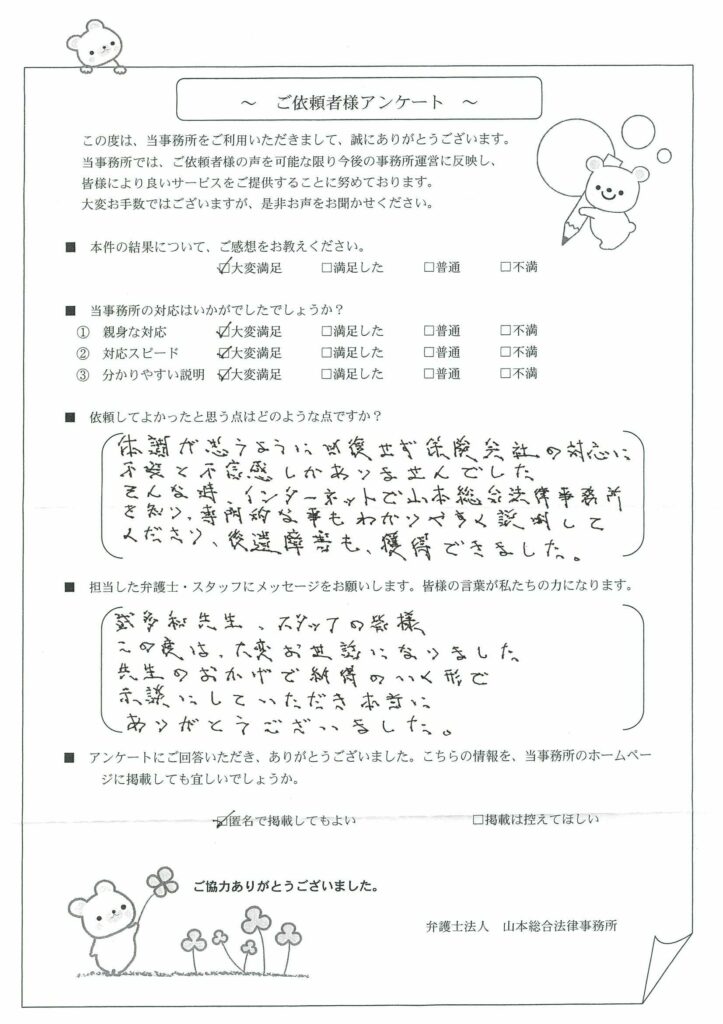 ～ ご依頼者様アンケート ～
この度は、当事務所をご利用いただきまして、誠にありがとうございます。
当事務所では、ご依頼者様の声を可能な限り今後の事務所運営に反映し、
皆様により良いサービスをご提供することに努めております。
大変お手数ではございますが、是非お声をお聞かせください。
■ 本件の結果について、ご感想をお教えください。
☑大変満足 □満足した □普通 □不満
■ 当事務所の対応はいかがでしたでしょうか？
① 親身な対応 ☑大変満足 □満足した □普通 □不満
② 対応スピード ☑大変満足 □満足した □普通 □不満
③ 分かりやすい説明 ☑大変満足 □満足した □普通 □不満
■ 依頼してよかったと思う点はどのような点ですか？
体調が思うように回復せず保険会社の対応に
不安と不信感しかありませんでした
そんな時、インターネットで山本総合法律事務所
を知り、専門的な事もわかりやすく説明して
くださり、後遺障害も、獲得できました。
■ 担当した弁護士・スタッフにメッセージをお願いします。皆様の言葉が私たちの力になります。
先生、スタッフの皆様
この度は、大変お世話になりました
先生のおかげで納得のいく形で
示談にしていただき本当に
ありがとうございました。
■ アンケートにご回答いただき、ありがとうございました。こちらの情報を、当事務所のホームペー
ジに掲載しても宜しいでしょうか。
☑匿名で掲載してもよい □掲載は控えてほしい
ご協力ありがとうございました。
弁護士法人 山本総合法律事務所